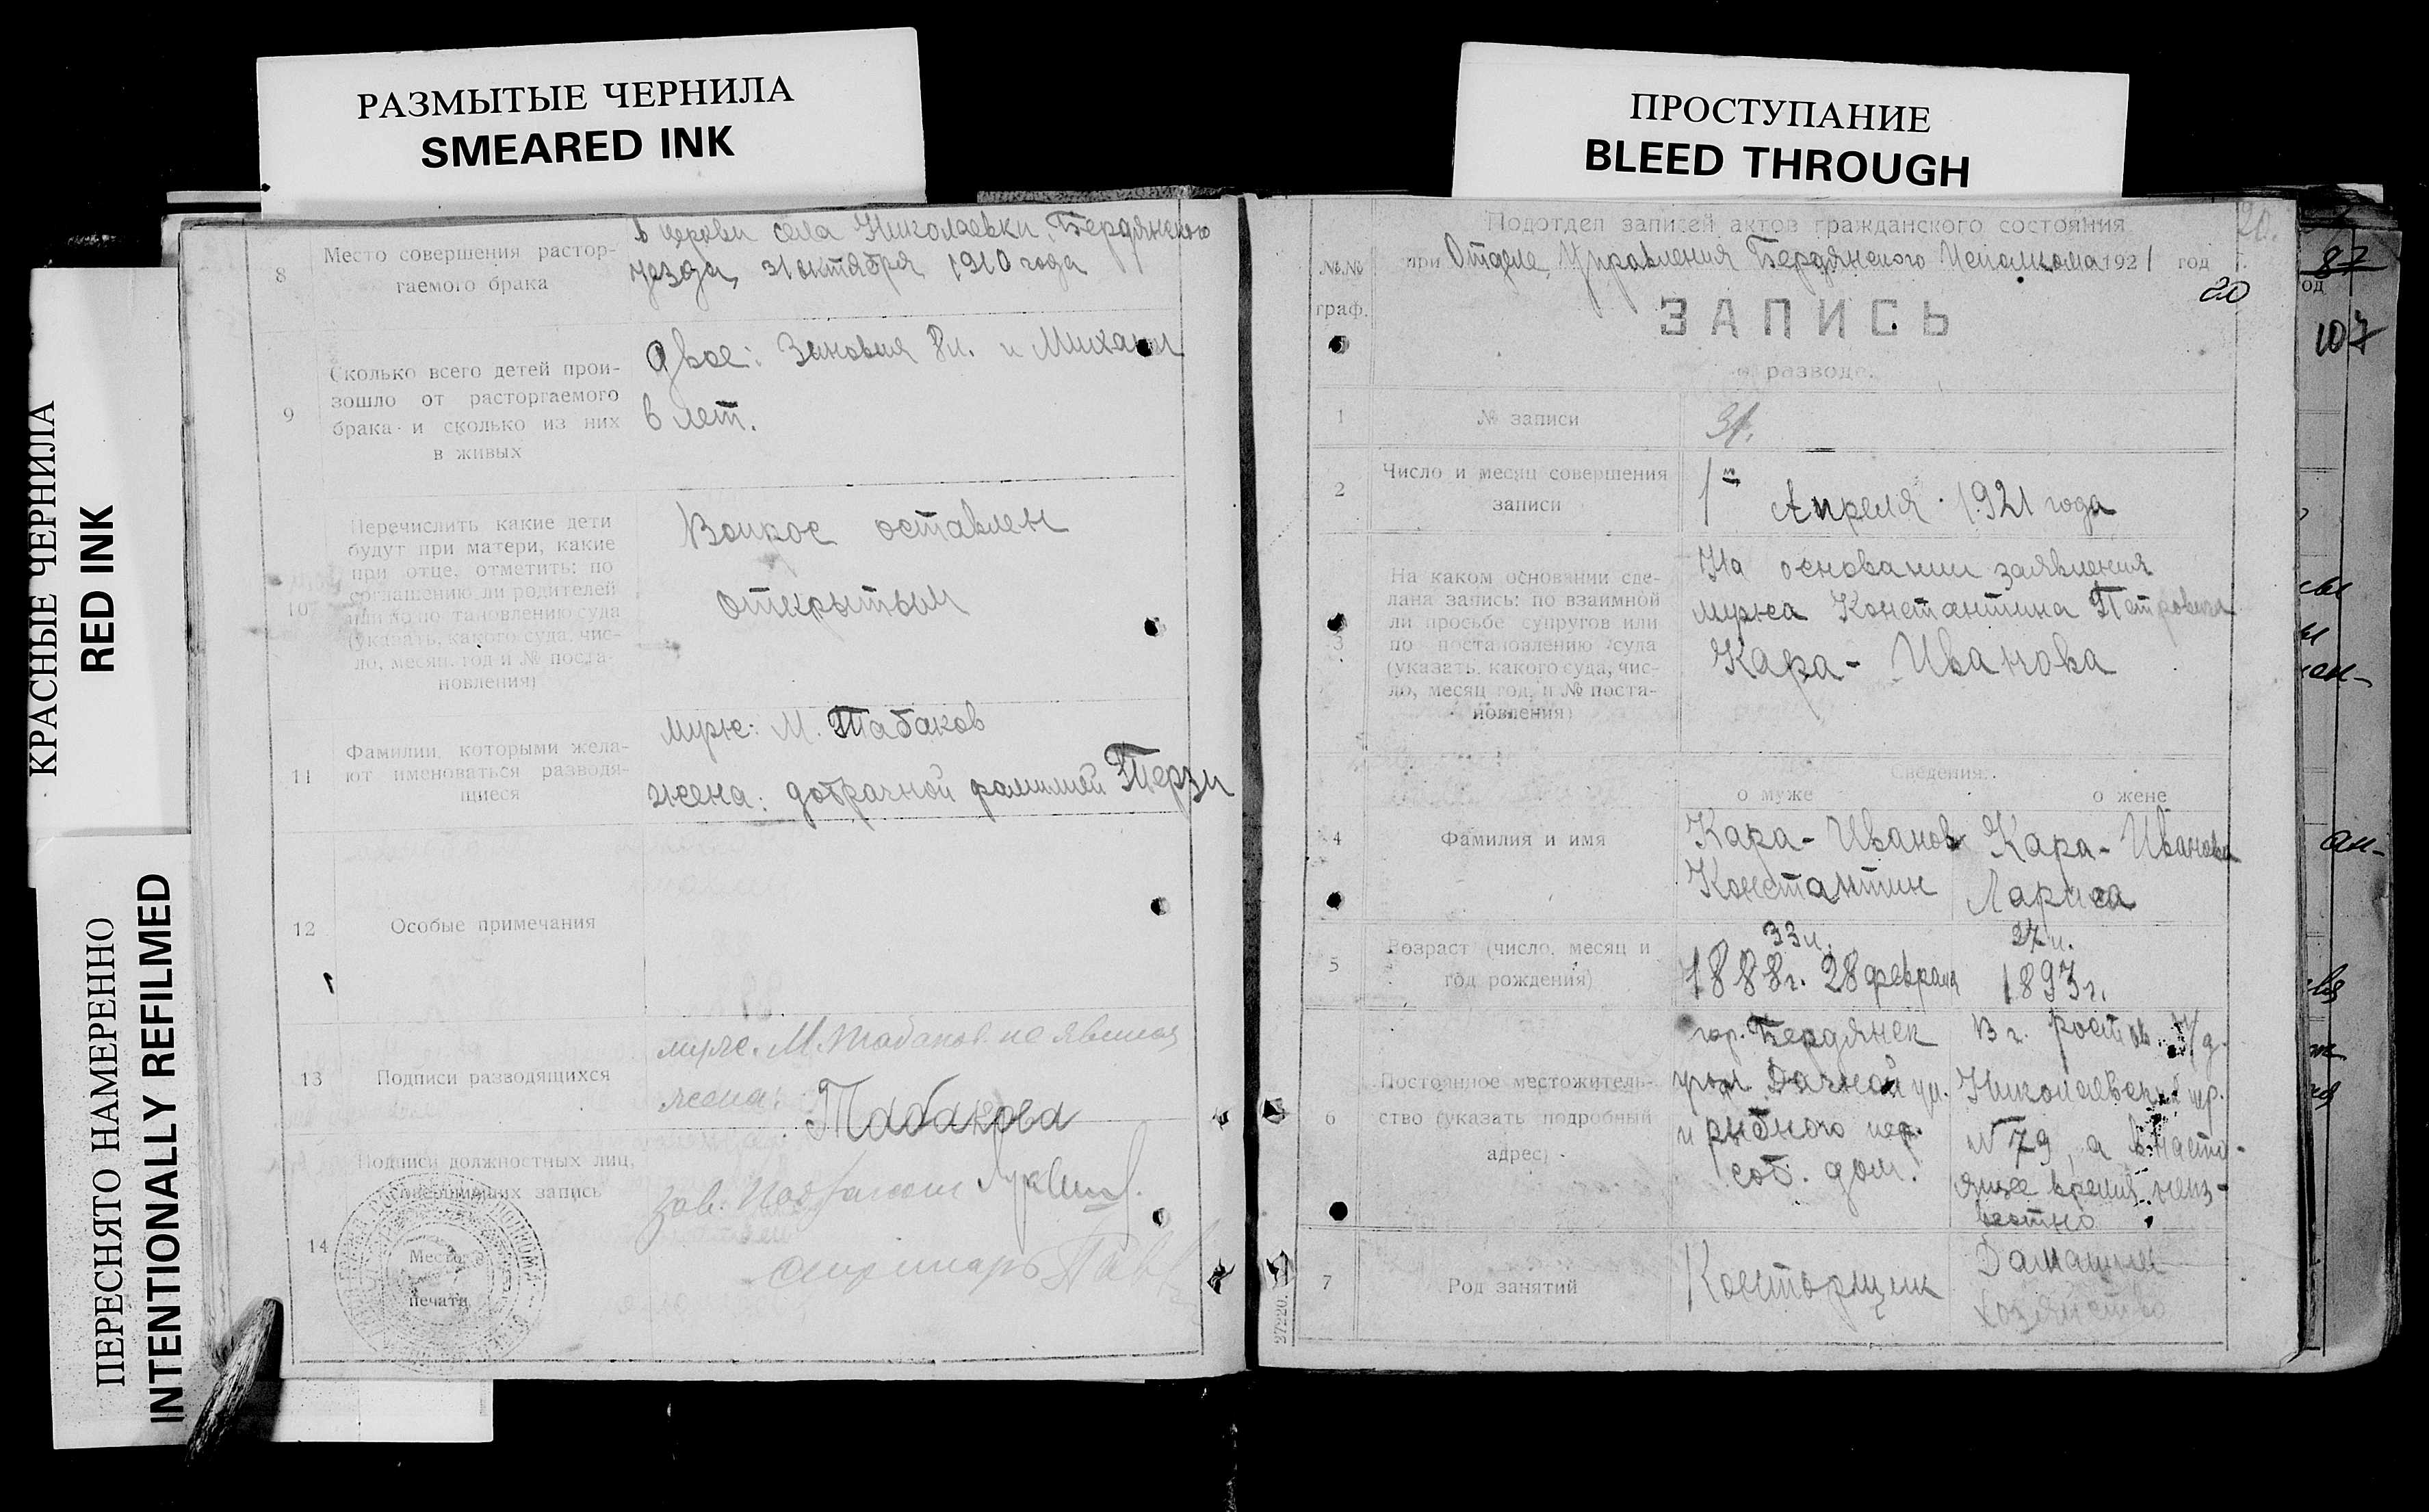 РАЗМЫТЫЕ ЧЕРНИЛА
SMEARED INK
ПРОСТУПАНИЕ
BLEED THROUGH
КРАСНЫЕ ЧЕРНИЛА
RED INK
ПЕРЕСНЯТО НАМЕРЕННО
INTENTIONALLY REFILMED
8
Место совершения растор-
гаемого брака
в церкви села Николаевки, Бердянского
уезда, 31 октября 1910 года
9
Сколько всего детей прои-
зошло от расторгаемого
брака и сколько из них
в живых
двое: Зиновия 8 л. и Михаил
6 лет.
10
Перечислить какие дети
будут при матери, какие
при отце, отметить: по
соглашению ли родителей
или по постановлению суда
(указать, какого суда, чис-
ло, месяц, год и № поста-
новления)
Вопрос оставлен
открытым
11
Фамилии, которыми жела-
ют именоваться разводя-
щиеся
муж: М. Табаков
жена: добрачной фамилией Терзи
12
Особые примечания
13
Подписи разводящихся
муж. М. Табаков не явился
жена: Табакова
14
Подписи должностных лиц,
совершивших запись
Место
печати
зав.
секретарь
Подотдел записей актов гражданского состояния
20.
при Отделе Управления Бердянского Исполкома 1921 год
20
№№
граф.
ЗАПИСЬ
о разводе.
1
№ записи
31.
2
Число и месяц совершения
записи
1го Апреля 1921 года
3
На каком основании сде-
лана запись: по взаимной
ли просьбе супругов или
по постановлению суда
(указать, какого суда, чис-
ло, месяц, год, и № поста-
новления)
На основании заявления
мужа Константина Петровича
Кара-Иванова
Сведения:
о муже
о жене
4
Фамилия и имя
Кара-Иванов
Константин
Кара-Иванова
Лариса
5
Возраст (число, месяц и
год рождения)
33 л.
1888 г. 28 февраля
27 л.
1893 г.
6
Постоянное местожитель-
ство (указать подробный
адрес)
гор. Бердянск
угол Дачной ул.
и рыбного пер.
соб. дом.
В г. Ростов н/д.
Николаевский пер.
№ 79, а в насто-
ящее время неиз-
вестно
7
Род занятий
Конторщик
Домашнее
хозяйство
27220.
87
од
107
ан-